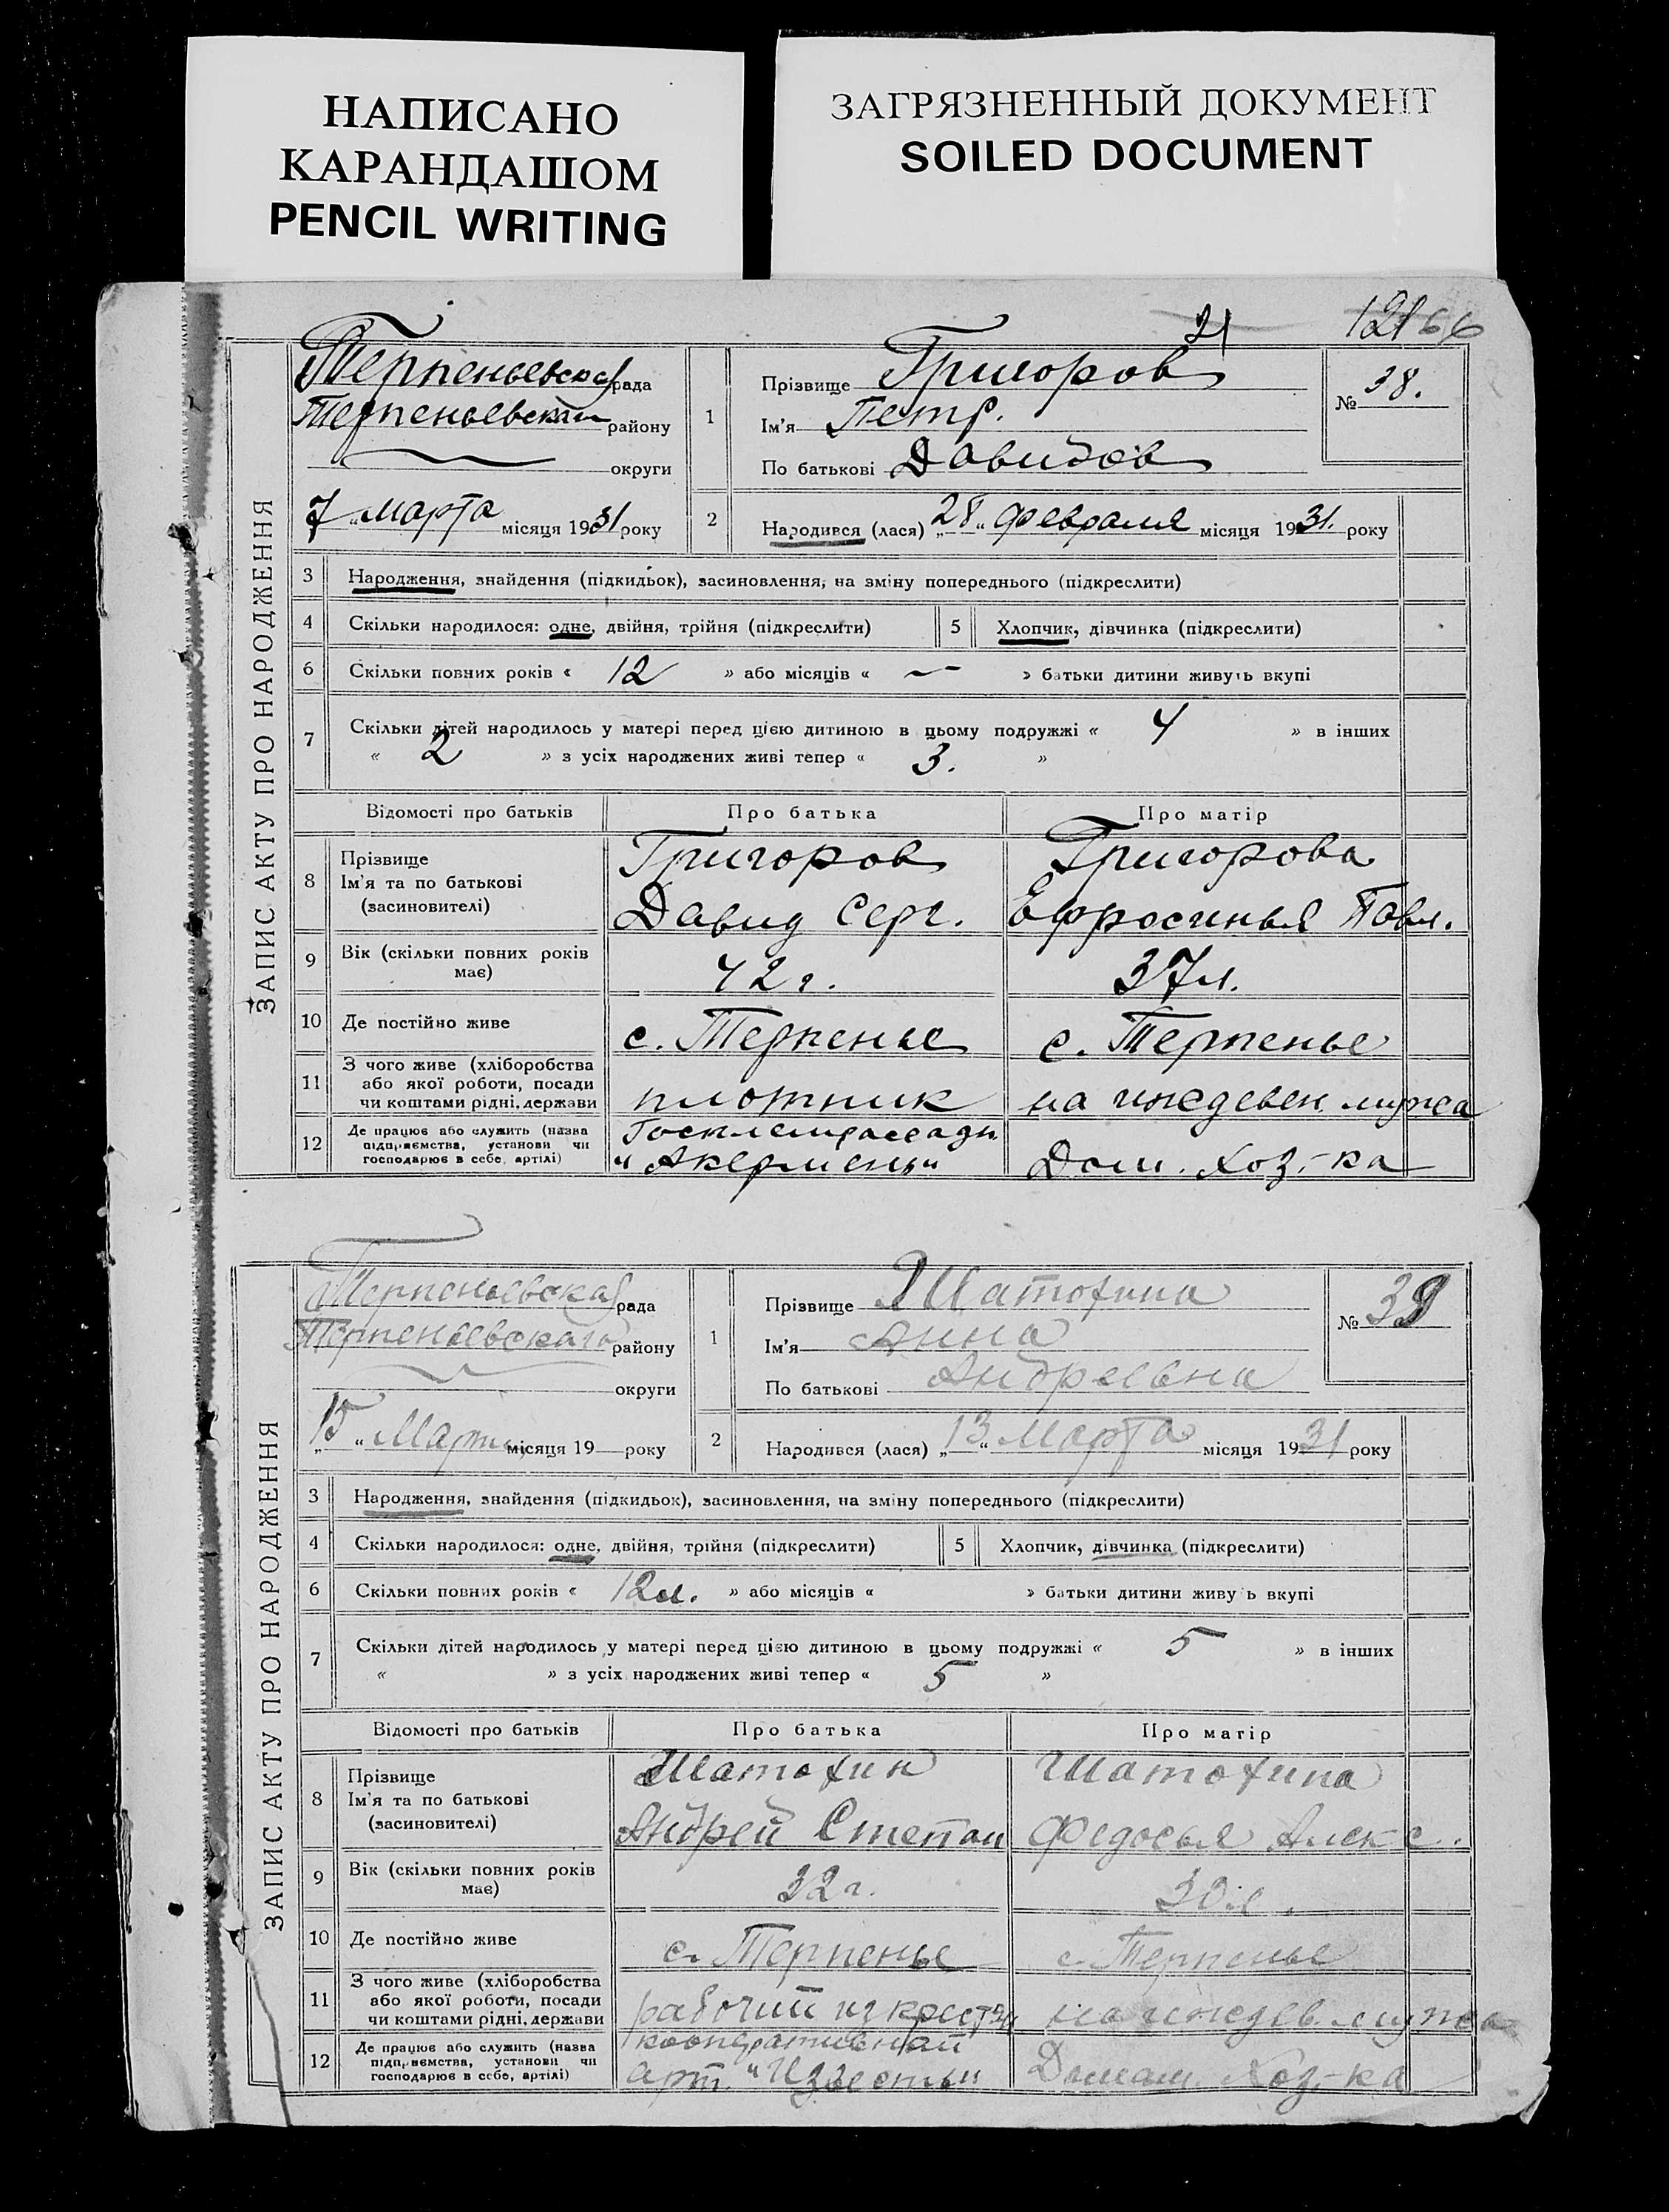 НАПИСАНО
КАРАНДАШОМ
PENCIL WRITING
ЗАГРЯЗНЕННЫЙ ДОКУМЕНТ
SOILED DOCUMENT
21
121 66
ЗАПИС АКТУ ПРО НАРОДЖЕННЯ
Терпеньевская рада
Терпеньевский району
округи
7 „ марта місяця 1931 року
1
Прізвище Григоров
Ім'я Петр.
По батькові Давидов
№ 38.
2
Народився (лася) „28“ февраля місяця 1931. року
3 Народження, знайдення (підкидьок), засиновлення, на зміну попереднього (підкреслити)
4 Скільки народилося: одне, двійня, трійня (підкреслити) 5 Хлопчик, дівчинка (підкреслити)
6 Скільки повних років « 12 » або місяців « — » батьки дитини живуть вкупі
7 Скільки дітей народилось у матері перед цією дитиною в цьому подружжі « 4 » в інших
« 2 » з усіх народжених живі тепер « 3. »
Відомості про батьків Про батька Про матір
8 Прізвище Григоров Григорова
Ім'я та по батькові
(засиновителі) Давид Серг. Ефросинья Павл.
9 Вік (скільки повних років
має) 42 г. 37 л.
10 Де постійно живе с. Терпенье с. Терпенье
11 З чого живе (хліборобства
або якої роботи, посади
чи коштами рідні, держави плотник на иждевен. мужа
12 Де працює або служить (назва
підприємства, установи чи
господарює в себе, артілі) „Акермень“ Дом. Хоз-ка
ЗАПИС АКТУ ПРО НАРОДЖЕННЯ
Терпеньевская рада
Терпеньевскаго району
округи
„15“ Марта місяця 19 року
1
Прізвище Шатохина
Ім'я Анна
По батькові Андреевна
№ 39
2
Народився (лася) „13“ Марта місяця 1931 року
3 Народження, знайдення (підкидьок), засиновлення, на зміну попереднього (підкреслити)
4 Скільки народилося: одне, двійня, трійня (підкреслити) 5 Хлопчик, дівчинка (підкреслити)
6 Скільки повних років « 12 л. » або місяців « » батьки дитини живуть вкупі
7 Скільки дітей народилось у матері перед цією дитиною в цьому подружжі « 5 » в інших
« » з усіх народжених живі тепер « 5 »
Відомості про батьків Про батька Про матір
8 Прізвище Шатохин Шатохина
Ім'я та по батькові
(засиновителі) Андрей Степан Федосья Алекс.
9 Вік (скільки повних років
має) 32 г. 30 л.
10 Де постійно живе с. Терпенье с. Терпенье
11 З чого живе (хліборобства
або якої роботи, посади
чи коштами рідні, держави рабочий из крестьян на иждев. мужа
12 Де працює або служить (назва
підприємства, установи чи
господарює в себе, артілі) кооперативный
арт. „Известь“ Домаш. Хоз-ка